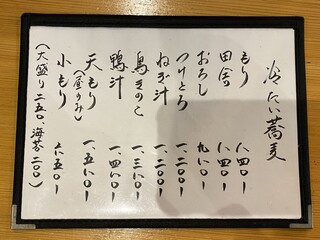 冷たい蕎麦
もり 八四〇ー
田舎 八四〇ー
おろし 九八〇ー
つけとろ 一、二〇〇ー
ねぎ汁 一、二〇〇ー
鳥きのこ 一、三八〇ー
鴨汁 一、四八〇ー
天もり 一、五八〇ー
(昼のみ)
小もり 五〇ー
(大盛り二五〇、海苔二〇〇)